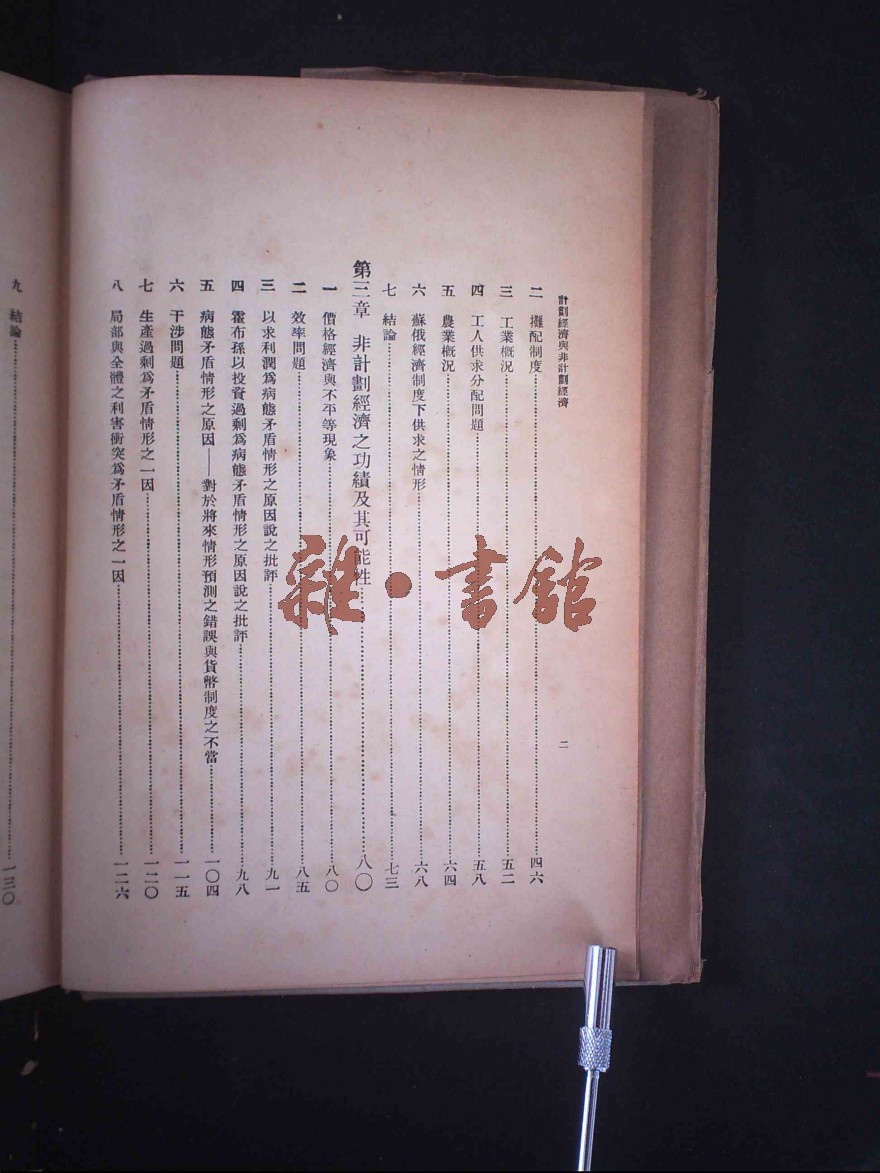 計劃經濟與非計劃經濟
二
二 攤配制度……四六
三 工業概況……五二
四 工人供求分配問題……五八
五 農業概況……六四
六 蘇俄經濟制度下供求之情形……六八
七 結論……七三
第三章 非計劃經濟之功績及其可能性……八〇
一 價格經濟與不平等現象……八〇
二 效率問題……八五
三 以求利潤爲病態矛盾情形之原因說之批評……九一
四 霍布孫以投資過剩爲病態矛盾情形之原因說之批評……九八
五 病態矛盾情形之原因——對於將來情形預測之錯誤與貨幣制度之不當……一〇四
六 干涉問題……一一五
七 生產過剩爲矛盾情形之一因……一二〇
八 局部與全體之利害衝突爲矛盾情形之一因……一二六
九 結論……一三〇
雜·書館